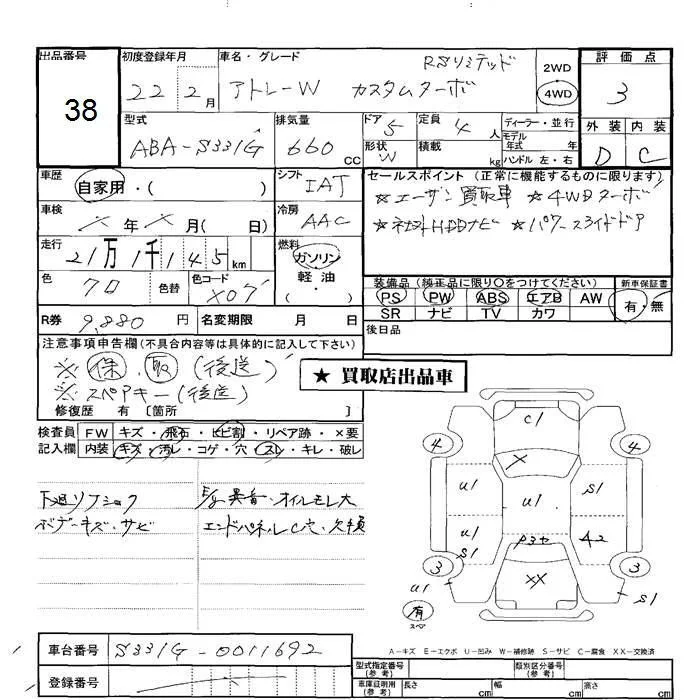 出品番号 初度登録年月 車名・グレード RSリミテッド 2WD 評価点
38 22 2月 アトレーW カスタムターボ 4WD 3
型式 排気量 ドア 5 定員 4人 ディーラー・並行 外装 内装
ABA-S331G 660cc 形状 W 積載 kg モデル年式 年 D C
ハンドル 左・右
車歴 シフト セールスポイント (正常に機能するものに限ります)
自家用・( ) IAT ☆エーザン買取車 ☆4WDターボ
車検 冷房 ☆社外HDDナビ ☆パワースライドドア
×年×月( 日) AAC
走行 燃料
21万1千145km ガソリン
色 色替 色コード 軽油 装備品(純正品に限り○をつけてください) 新車保証書
クロ X07 ・( ) PS PW ABS エアB AW 有・無
R券 9,880円 名変期限 月 日 SR ナビ TV カワ
後日品
注意事項申告欄(不具合内容等は具体的に記入して下さい)
※保.取(後送) ★ 買取店出品車
※スペアキー(後送)
修復歴 有〔箇所 〕
検査員 FW キズ・飛石・ヒビ割・リペア跡・×要
記入欄 内装 キズ・汚レ・コゲ・穴・スレ・キレ・破レ
下廻リフショク E/g異音・オイルモレ大
ボデーキズ・サビ エンドパネルC穴・欠損
C1
4 × 4
U1 U1 S1
U1 S1 P3ヤ A2
3 ×× 3
U1 S1
有
スペア
A-キズ E-エクボ U-凹み W-補修跡 S-サビ C-腐食 XX-交換済
車台番号 S331G-0011692 型式指定番号(参考) 類別区分番号(参考)
登録番号 車庫証明用(参考) 長さ cm 幅 cm 高さ cm